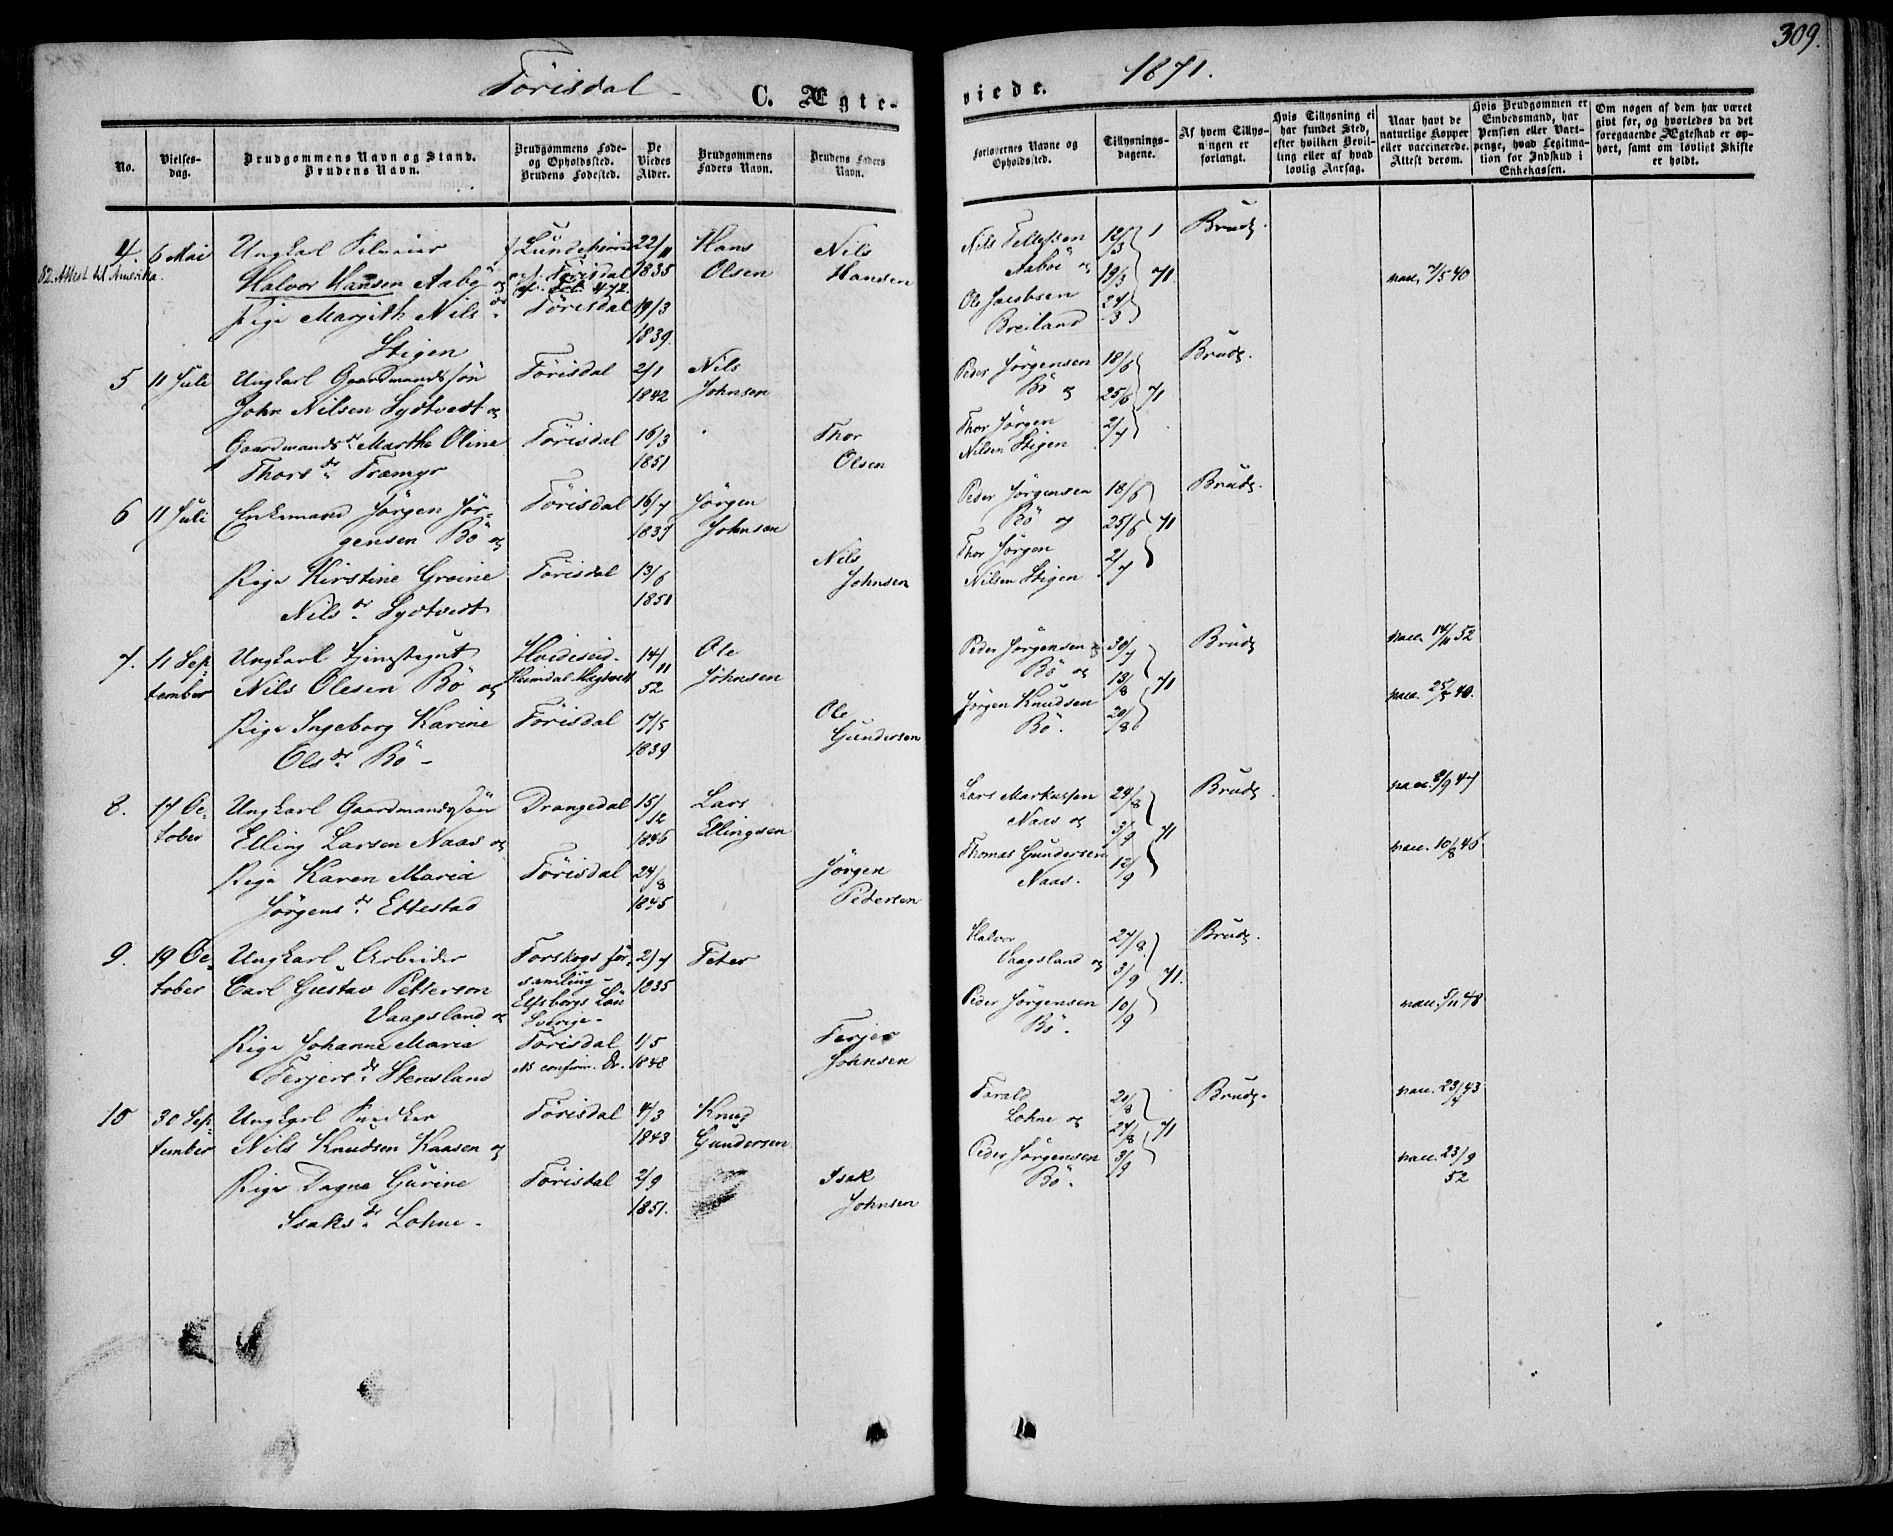 309.
Törisdal
C. Ægte-
viede.
1871.
No.
Vielses-
dag.
Brudgommens Navn og Stand.
Brudens Navn.
Brudgommens Føde-
og Opholdssted.
Brudens Fødested.
De
Viedes
Alder.
Brudgommens
Faders Navn.
Brudens Faders
Navn.
Forlovernes Navne og
Opholdssted.
Tillysnings-
dagene.
Af hvem Tillys-
ningen er
forlangt.
Hvis Tillysning ei
har fundet Sted,
efter hvilken Bevil-
ling eller af hvad
lovlig Aarsag.
Naar havt de
naturlige Kopper
eller vaccinerede.
Attest derom.
Hvis Brudgommen er
Embedsmand, har
Pension eller Vart-
penge, hvad Legitma-
tion for Indskud i
Enkekassen.
Om nogen af dem har været
givt før, og hvorledes da det
foregaaende Ægteskab er op-
hørt, samt om lovligt Skifte
er holdt.
4. 6 Mai Ungkarl
82. Attest til Amerika.
Halvor Hansen Aabö og
Pige Margith Nilsdr
Stigen
Törisdal
Törisdal
22/11
1835
19/3
1839.
Hans
Olsen
Nils
Hansen
Nils Tellefsen
Aabö og
Ole Jacobsen
Breiland
12/3
19/3 71.
24/3
Brudg.
vacc. 7/5 40
5 11 Juli Ungkarl Gaardmandssön
John Nilsen Lydtvedt og
Gaardmandsdr Marthe Oline
Thorsdr Tramyr
Törisdal
Törisdal
2/1
1842
16/3
1851
Nils
Johnsen
Thor
Olsen
Peder Jörgensen
Bö og
Thor Jörgen
Nilsen Stigen
18/6
25/6 71
2/7
Brudg.
6 11 Juli Enkemand Jörgen Jör-
gensen Bö og
Pige Kirstine Groine
Nilsdr Lydtvedt
Törisdal
Törisdal
16/7
1837
13/6
1850
Jörgen
Johnsen
Nils
Johnsen
Peder Jörgensen
Bö og
Thor Jörgen
Nilsen Stigen
18/6
25/6 71
2/7
Brudg.
7. 11 Sep-
tember
Ungkarl Tjenestegut
Nils Olesen Bö og
Pige Ingeborg Karine
Olsdr Bö -
Hvideseid-
Törisdal
14/11
52
17/5
1839
Ole
Johnsen
Ole
Gundersen
Peder Jörgensen
Bö og
Jörgen Knudsen
Bö.
30/7
13/8 71
20/8
Brudg
vacc. 14/11 52
vacc. 25/5 40.
8. 17 Oc-
tober
Ungkarl Gaardmandssön
Elling Larsen Naas og
Pige Karen Maria
Jörgensdr Ettestad
Drangedal
Törisdal
15/12
1846
24/8
1845
Lars
Ellingsen
Jörgen
Pedersen
Lars Markussen
Naas og
Thomas Gundersen
Naas.
24/8
3/9 71
12/9
Brudg.
vacc. 8/9 47
vacc. 10/8 46
9. 19 Oc-
tober
Ungkarl Arbeider
Carl Gustav Petterson
Vaagsland og
Pige Johanne Maria
Terjersdr Stensland
Forskogs for-
samling -
Elfsborgs Län
Sverige -
Törisdal
2/7
1835
1/5
1848
Peter
Terjer
Johnsen
Halvor
Vaagsland og
Peder Jörgensen
Bö.
27/8
3/9 71.
10/9
Brudg.
vacc. 5/11 48
10 30 Sep-
tember
Ungkarl
Nils Knudsen Kaasen og
Pige Dagne Gurine
Isaksdr Lohne -
Törisdal
Törisdal
4/3
1843
2/9
1851.
Knud
Gundersen
Isak
Johnsen
Tarald
Lohne og
Peder Jörgensen
Bö.
20/8
27/8 71
3/9
Brudg.
vacc. 23/7 43
vacc. 23/9
52